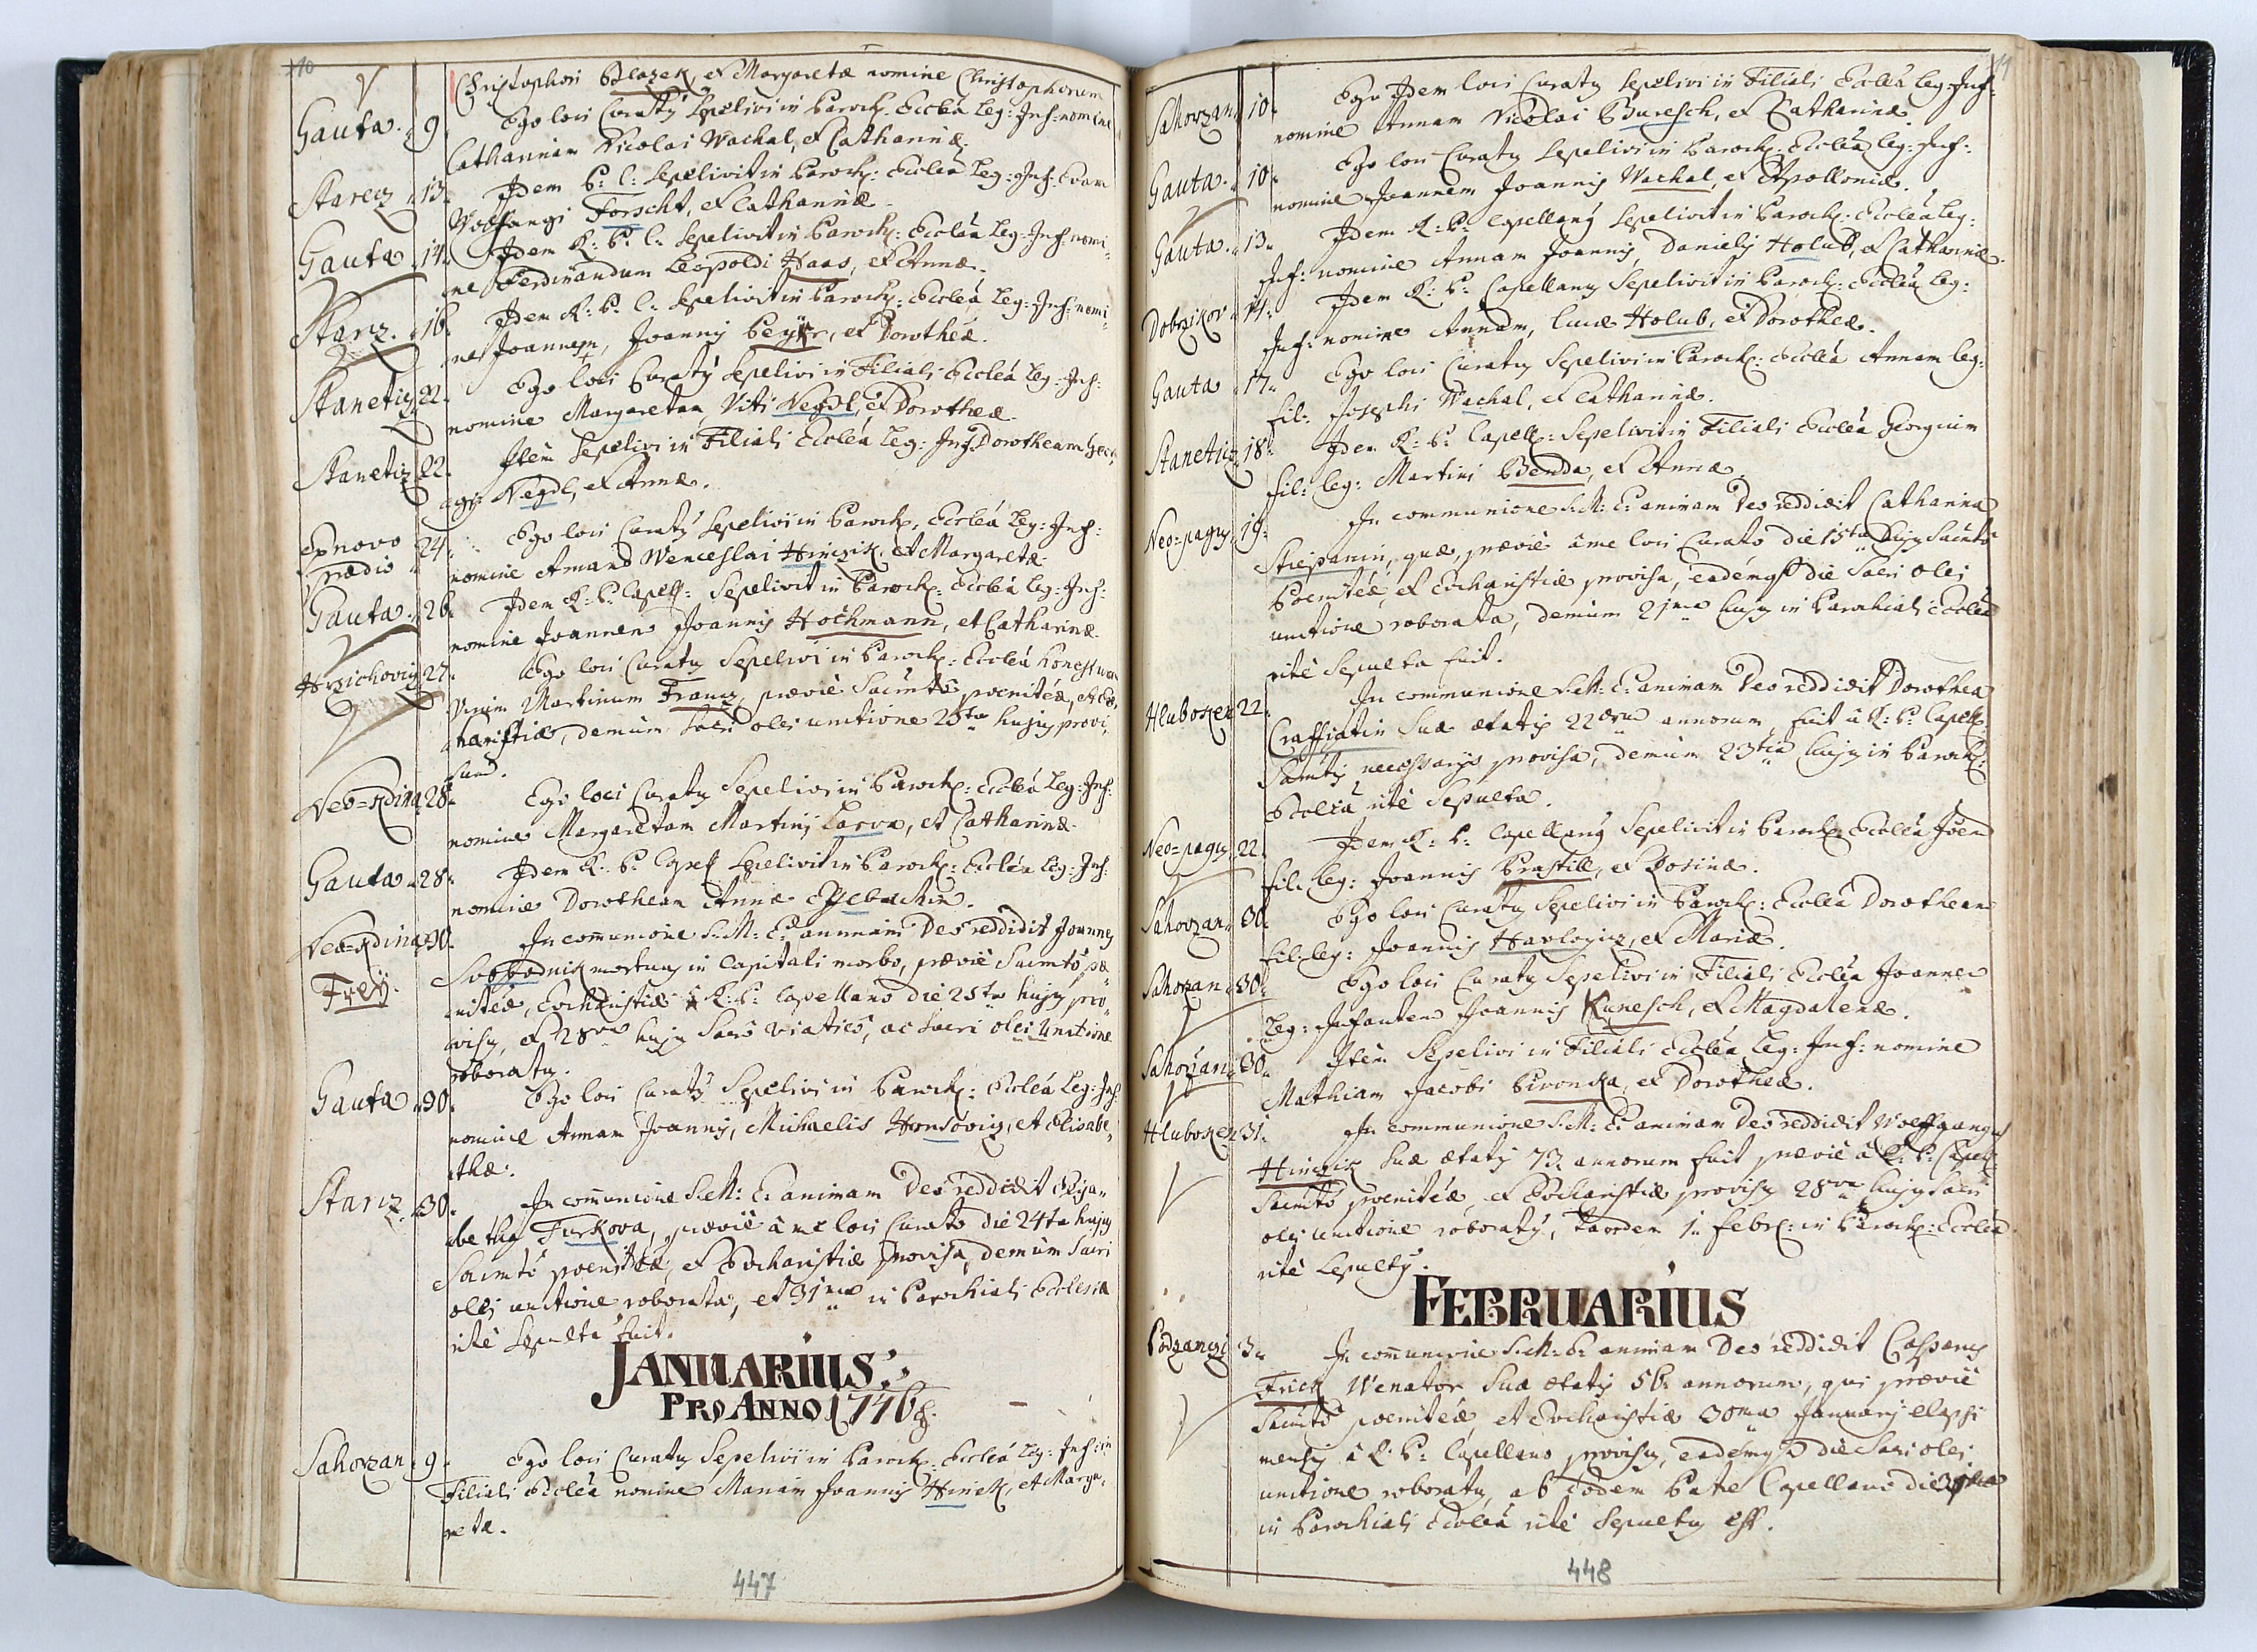 110
Christophori Blazek, et Margaretæ nomine Christophorum
Gauta. 9
Ego loci Curatus Sepelivi in Paroch: Ecclêa Leg: Inf: nomine
Catharinam Nicolai Wachal, et Catharinæ.
Starecz 13.
Idem P: C: Sepelivit in Paroch: Ecclêa Leg: Inf: Evam
Wolfgangi Forscht, et Catharinæ.
Gauta 14.
Idem R: P: C: Sepelivit in Paroch: Ecclêa Leg: Inf: nomi-
ne Ferdinandum Leopoldi Haas, et Annæ.
Starz. 16.
Idem R: P: C: Sepelivit in Paroch: Ecclêa Leg: Inf: nomi-
ne Joannem, Joannis Beyer, et Dorotheæ.
Stanetiz 22.
Ego loci Curatus Sepelivi in Filiali Ecclêa Leg: Inf:
nomine Margaretam Viti Negdl, et Dorotheæ.
Stanetiz 22.
Item Sepelivi in Filiali Ecclêa Leg: Inf: Dorotheam
Negdl, et Annæ.
Ex novo
prædio 24.
Ego loci Curatus Sepelivi in Paroch: Ecclêa Leg: Inf:
nomine Amand Wenceslai Hinczik, et Margaretæ.
Gauta. 26.
Idem R: P: Capell: Sepelivit in Paroch: Ecclêa Leg: Inf:
nomine Joannem Joannis Hochmann, et Catharinæ.
Hrzichoviz 27.
Ego loci Curatus Sepelivi in Paroch: Ecclêa honestum
Virum Martinum Franz, prævie Sacmto poenitêæ, et Eu-
charistiæ, demum Sacri olei unctione 25ta hujus provi-
sum.
Neo=Kdina 28.
Ego loci Curatus Sepelivi in Paroch: Ecclêa Leg: Inf:
nomine Margaretam Martini Larva, et Catharinæ.
Gauta 28.
Idem R: P: Capell Sepelivit in Paroch: Ecclêa Leg: Inf:
nomine Dorotheam Annæ
Neo=Kdina 30.
In communione S: M: E: animam Deo reddidit Joannes
Frey.
Svobodnik mortuus in Capitali morbo, prævie Sacmto pæ-
nitêæ, Eucharistiæ à R: P: Capellano die 25ta hujus pro-
visus, et 28va hujus Sacro viatico, ac Sacri olei Unctione
roboratus.
Gauta 30.
Ego loci Curatus Sepelivi in Paroch: Ecclêa Leg: Inf:
nomine Annam Joannis, Michaelis Honsoviz, et Elisabe-
thæ.
Starz 30.
In communione S: M: E: animam Deo reddidit Elisa-
betha Turkova, prævie à me loci Curato die 24ta hujus
Sacmto poenitêæ, et Eucharistiæ provisa, demum Sacri
olei unctione roborata, et 31ma in Parochiali Ecclesia
rite Sepulta fuit.
JANUARIUS
PRO ANNO 1746
Sahorzan 9.
Ego loci Curatus Sepelivi in Paroch: Ecclêa Leg: Inf: in
Filiali Ecclêa nomine Mariam Joannis Hinek, et Marga-
retæ.
447
Sahorzan 10.
Ego Idem loci Curatus Sepelivi in Filiali Ecclêa Leg: Inf:
nomine Annam Nicolai Buresch, et Catharinæ.
Gauta. 10.
Ego loci Curatus Sepelivi in Paroch: Ecclêa Leg: Inf:
nomine Joannem Joannis Wachal, et Apolloniæ.
Gauta. 13.
Idem R: P: Capellanus Sepelivit in Paroch: Ecclêa Leg:
Inf: nomine Annam Joannis, Danielis Holub, et Catharinæ.
Dobrzikov 14.
Idem R: P: Capellanus Sepelivit in Paroch: Ecclêa Leg:
Inf: nomine Annam, Lucæ Holub, et Dorotheæ.
Gauta 17.
Ego loci Curatus Sepelivi in Paroch: Ecclêa Annam Leg:
Fil: Josephi Wachal, et Catharinæ.
Stanetiz 18.
Idem R: P: Capell: Sepelivit in Filiali Ecclêa Georgium
Fil: Leg: Martini Benda, et Annæ.
Neo=pagus 19.
In communione S: M: E: animam Deo reddidit Catharina
Stiepanin, quæ prævie à me loci Curato die 15ta hujus Sacmto
Poenitêæ, et Eucharistiæ provisa, eademq die Sacri Olei
unctione roborata, demum 21ma hujus in Parochiali Ecclêa
rite Sepulta fuit.
Hluboken 22.
In communione S: M: E: animam Deo reddidit Dorothea
Craffiatin Suæ ætatis 22orum annorum fuit à R: P: Capell:
Sacmtis necessarys provisa, demum 23tia hujus in Paroch:
Ecclêa rite Sepulta.
Neo=pagus 22.
Idem R: P: Capellanus Sepelivit in Paroch: Ecclêa Joem
Fil: Leg: Joannis Prastill, et Rosinæ.
Sahorzan 30.
Ego loci Curatus Sepelivi in Paroch: Ecclêa Dorotheam
Fil: Leg: Joannis Havloviz, et Mariæ.
Sahorzan 30.
Ego loci Curatus Sepelivi in Filiali Ecclêa Joannem
Leg: Infantem Joannis Kunesch, et Magdalenæ.
Sahorzan 30.
Item Sepelivi in Filiali Ecclêa Leg: Inf: nomine
Mathiam Jacobi Pivonka, et Dorotheæ.
Hluboken 31.
In communione S: M: E: animam Deo reddidit Wolffgangus
Hinczik Suæ ætatis 73 annorum fuit prævie à R: P: Capell:
Sacmto poenitêæ, et Eucharistiæ provisus 28va hujus Sacri
olei unctione roboratus, tandem 1. Febr: in Paroch: Ecclêa
rite Sepultus.
FEBRUARIUS
Podzamczi 3.
In communione S: M: E: animam Deo reddidit Casparus
Frick Venator Suæ ætatis 56. annorum, qui prævie
Sacmto poenitêæ, et Eucharistiæ 30ma Januarij elapsi
mensis à R: P: Capellano provisus, eademq die Sacri olei
unctione roboratus, ab Eodem Patre Capellano die
in Parochiali Ecclêa rite Sepultus est.
448